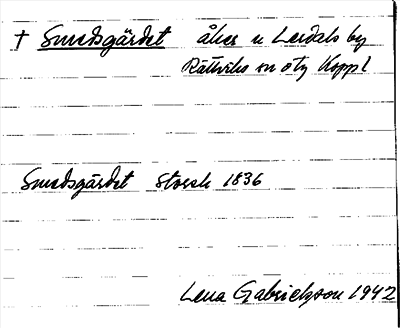 † Smedsgärdet åker n Lerdals by
Rättviks sn o tg Kopp l
Smedsgärdet Storsk 1836
Lena Gabrielsson 1942